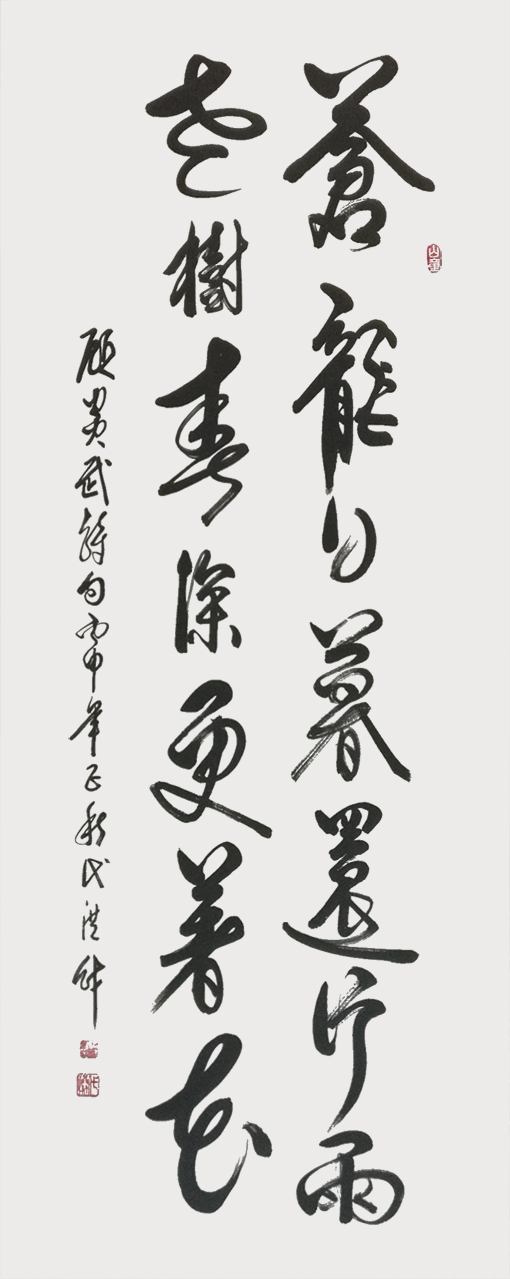 蒼龍日暮還行雨
老樹春深更著花
顧炎武詩句丙申年